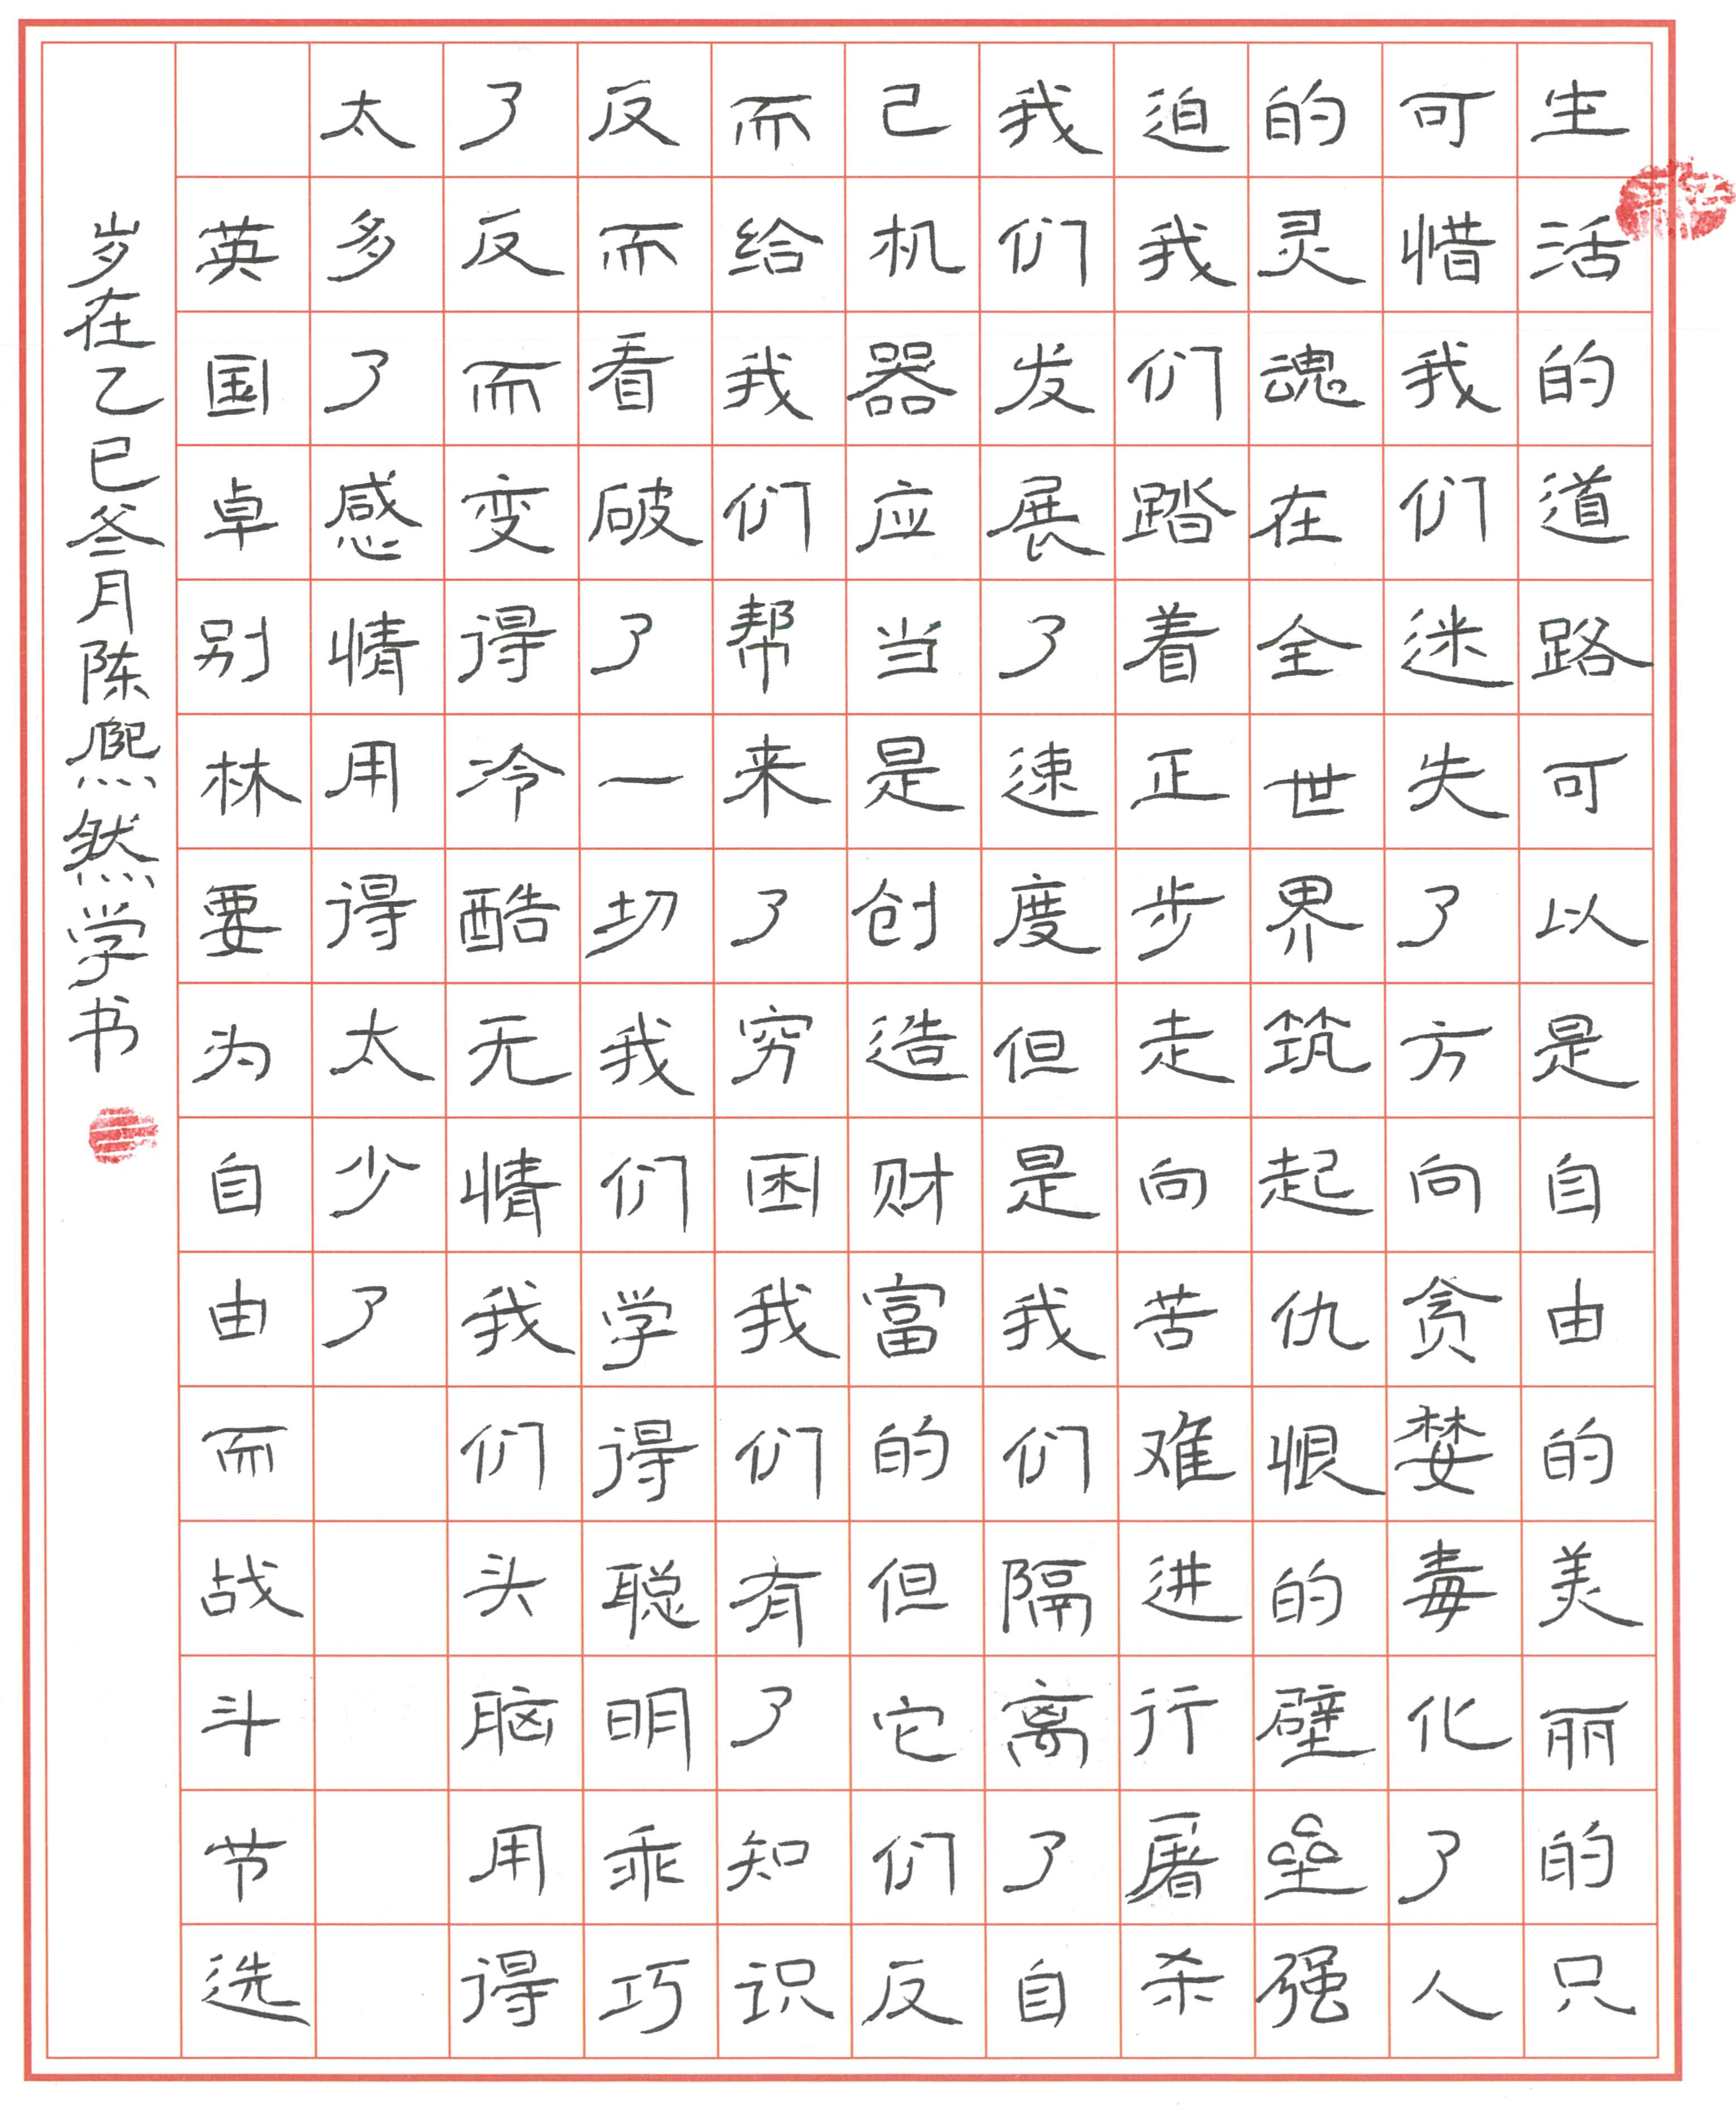 生活的道路可以是自由的美丽的只
可惜我们迷失了方向贪婪毒化了人
的灵魂在全世界筑起仇恨的壁垒强
迫我们踏着正步走向苦难进行屠杀
我们发展了速度但是我们隔离了自
己机器应当是创造财富的但它们反
而给我们帮来了穷困我们有了知识
反而看破了一切我们学得聪明乖巧
了反而变得冷酷无情我们头脑用得
太多了感情用得太少了
英国卓别林要为自由而战斗节选
岁在乙巳冬月陈熙然学书